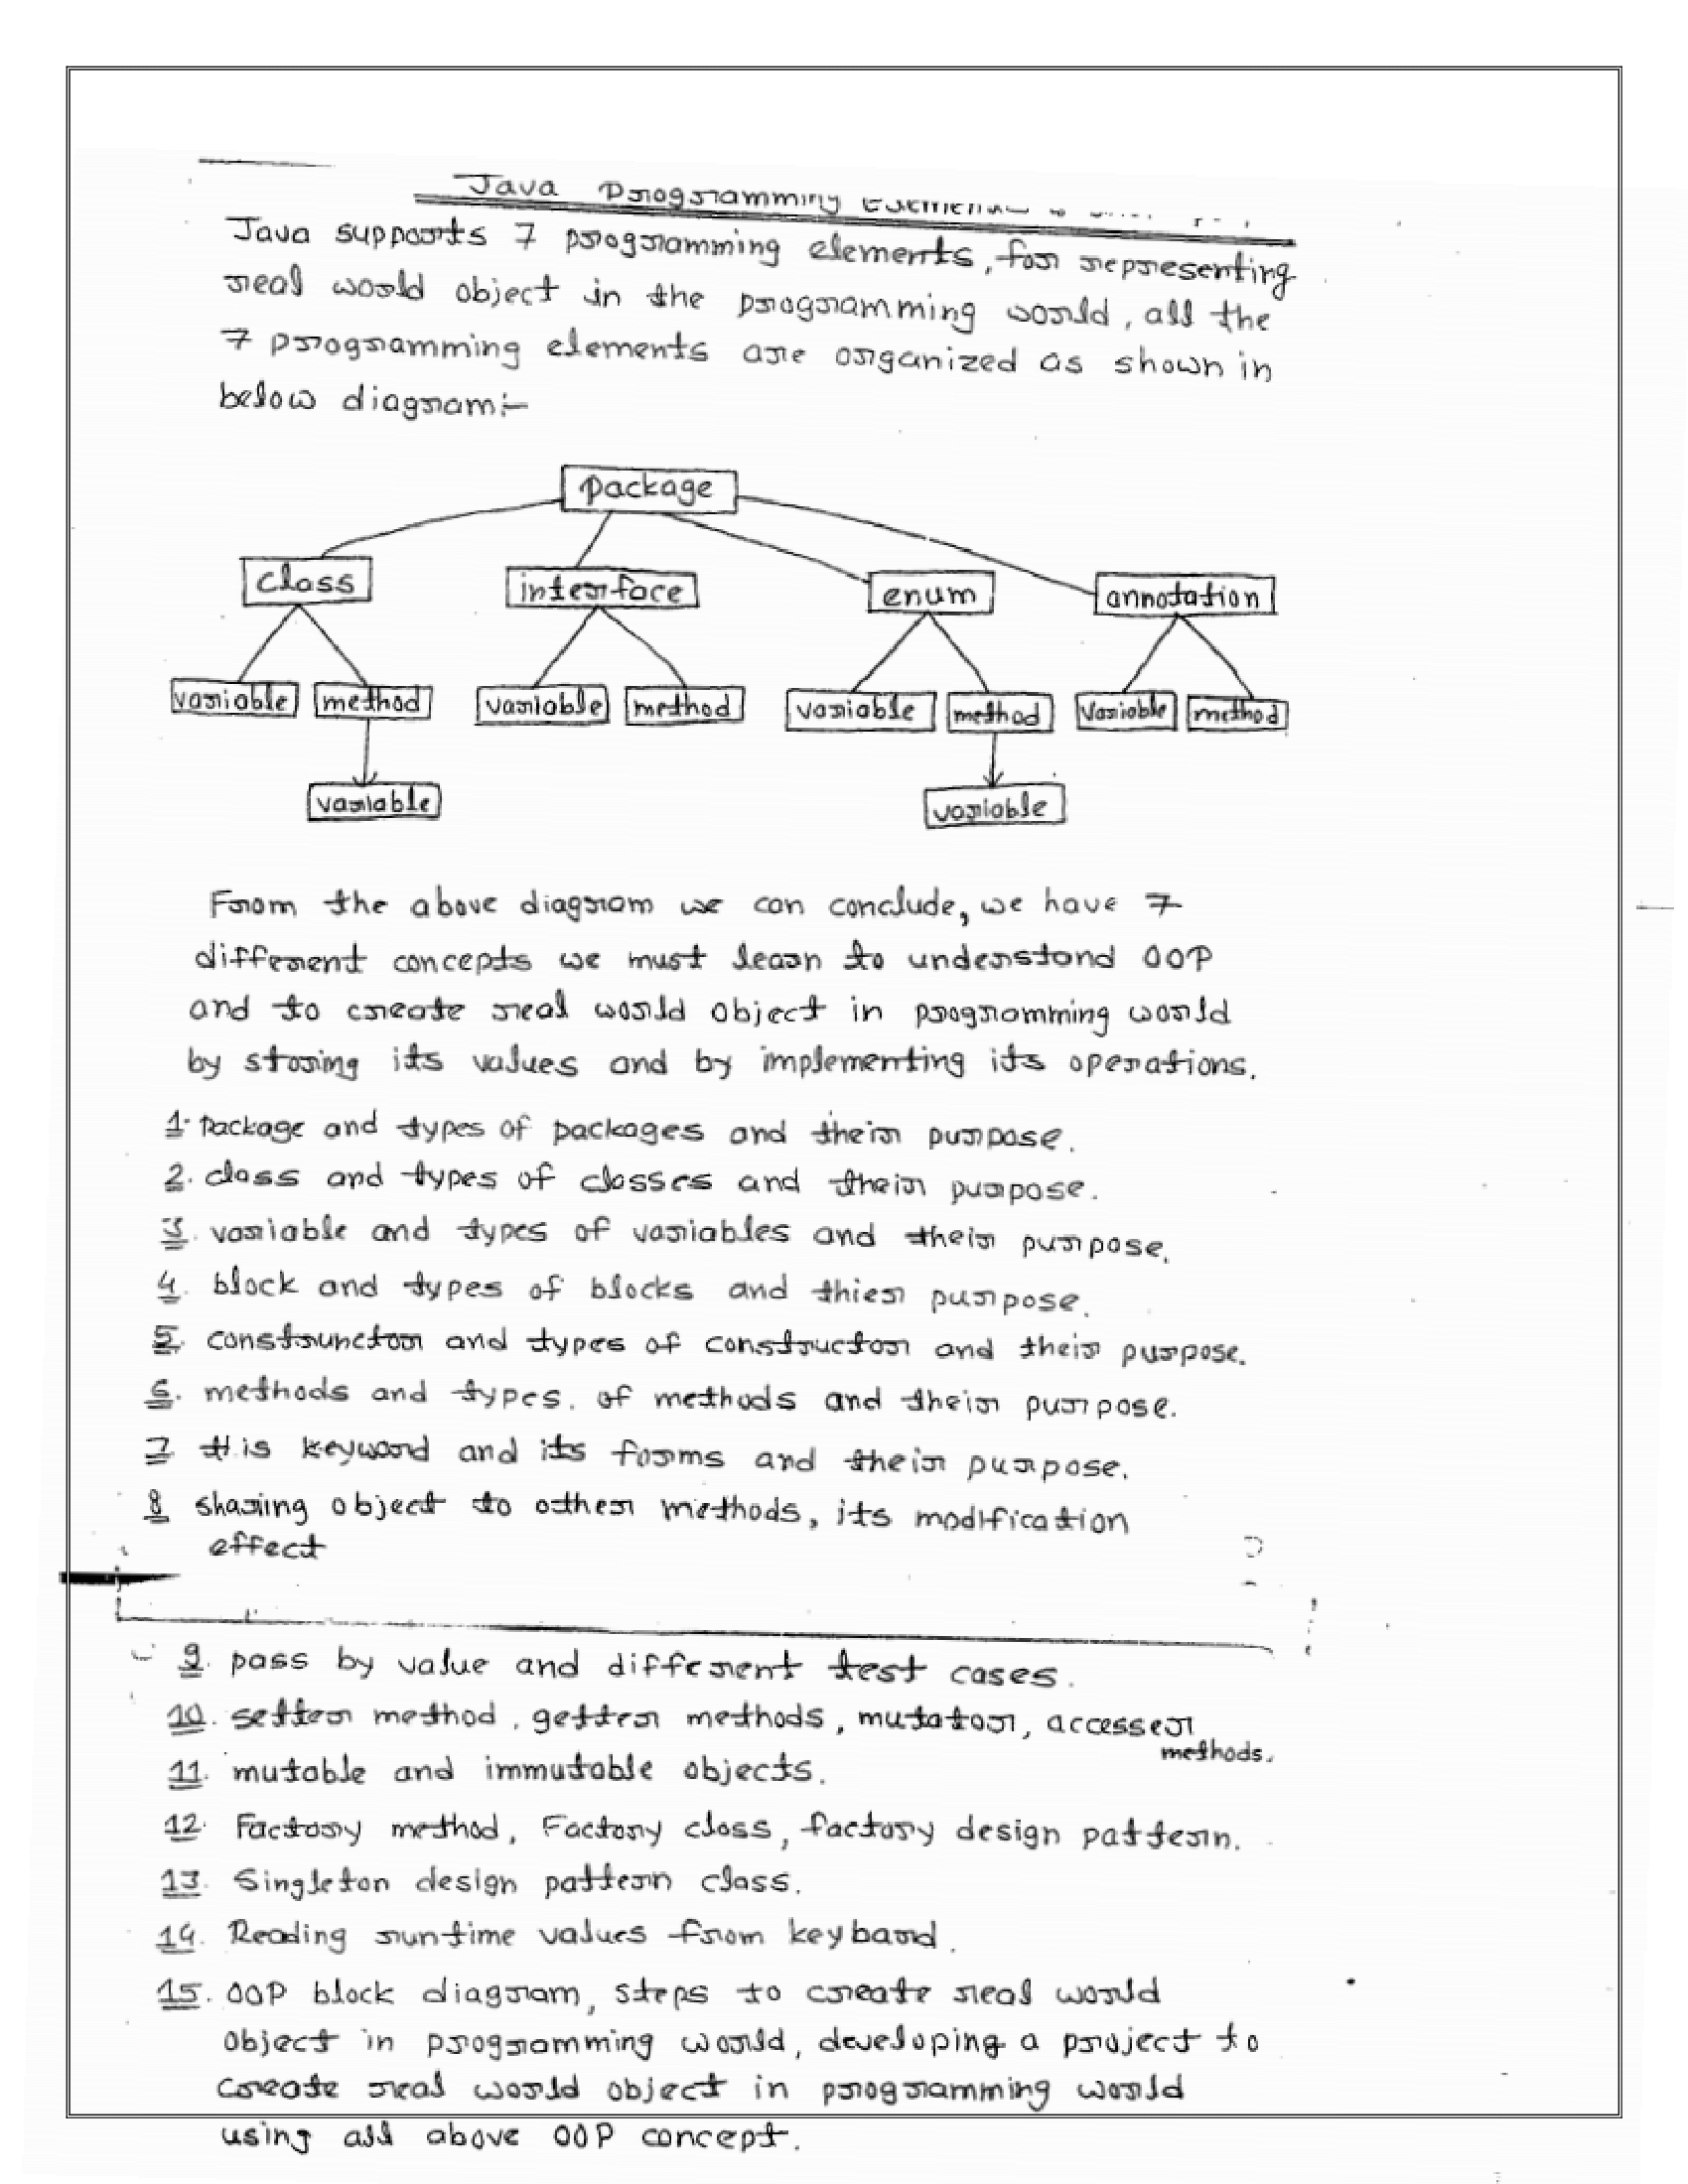 Java Programming
Java supports 7 programming elements, for representing
real world object in the programming world, all the
7 programming elements are organized as shown in
below diagram:-
package
class interface enum annotation
variable method variable method variable method variable method
variable variable
From the above diagram we can conclude, we have 7
different concepts we must learn to understand OOP
and to create real world object in programming world
by storing its values and by implementing its operations.
1. Package and types of packages and their purpose.
2. class and types of classes and their purpose.
3. variable and types of variables and their purpose.
4. block and types of blocks and thier purpose.
5. construnctor and types of constructor and their purpose.
6. methods and types. of methods and their purpose.
7 this keyword and its forms and their purpose.
8 sharing object to other methods, its modification
effect
9. pass by value and different test cases.
10. setter method, getter methods, mutator, accesser
methods.
11. mutable and immutable objects.
12. Factory method, Factory class, factory design pattern.
13. Singleton design pattern class.
14. Reading runtime values from keybard.
15. OOP block diagram, steps to create real world
object in programming world, developing a project to
create real world object in programming world
using all above OOP concept.